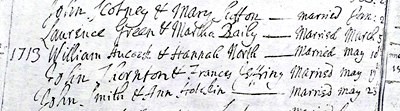 John Scotney & Mary Cotton — married Jan: 2
Lawrence Green & Martha Daily — Married March 5
1713 William & Hannah North — Married may 10
John Thornton & Frances Married may 1
John Smith & Ann — Married may 2